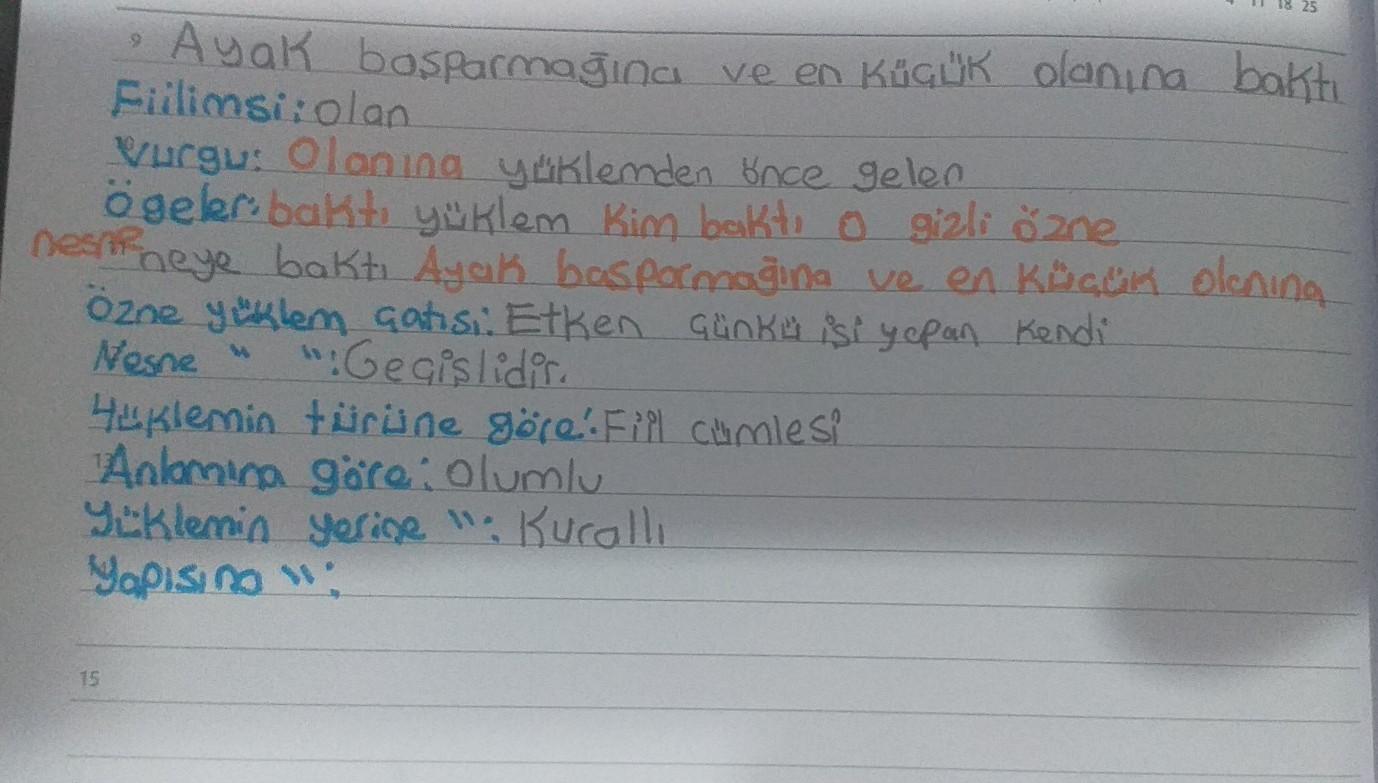 11 18 25
, Ayak bosparmağına ve en küçük olanına baktı
Fiilimsi: olan
Vurgu: Olanına yüklemden önce gelen
Ögeler: baktı yüklem Kim baktı O gizli özne
nesne neye baktı Ayak basparmağına ve en küçük olanına
Özne yüklem çatısı: Etken Çünkü işi yapan kendi
Nesne " ": Geçişlidir.
Yüklemin türüne göre: Fiil cümlesi
Anlamına göre: Olumlu
Yüklemin yerine ": Kurallı
Yapısına ":
15